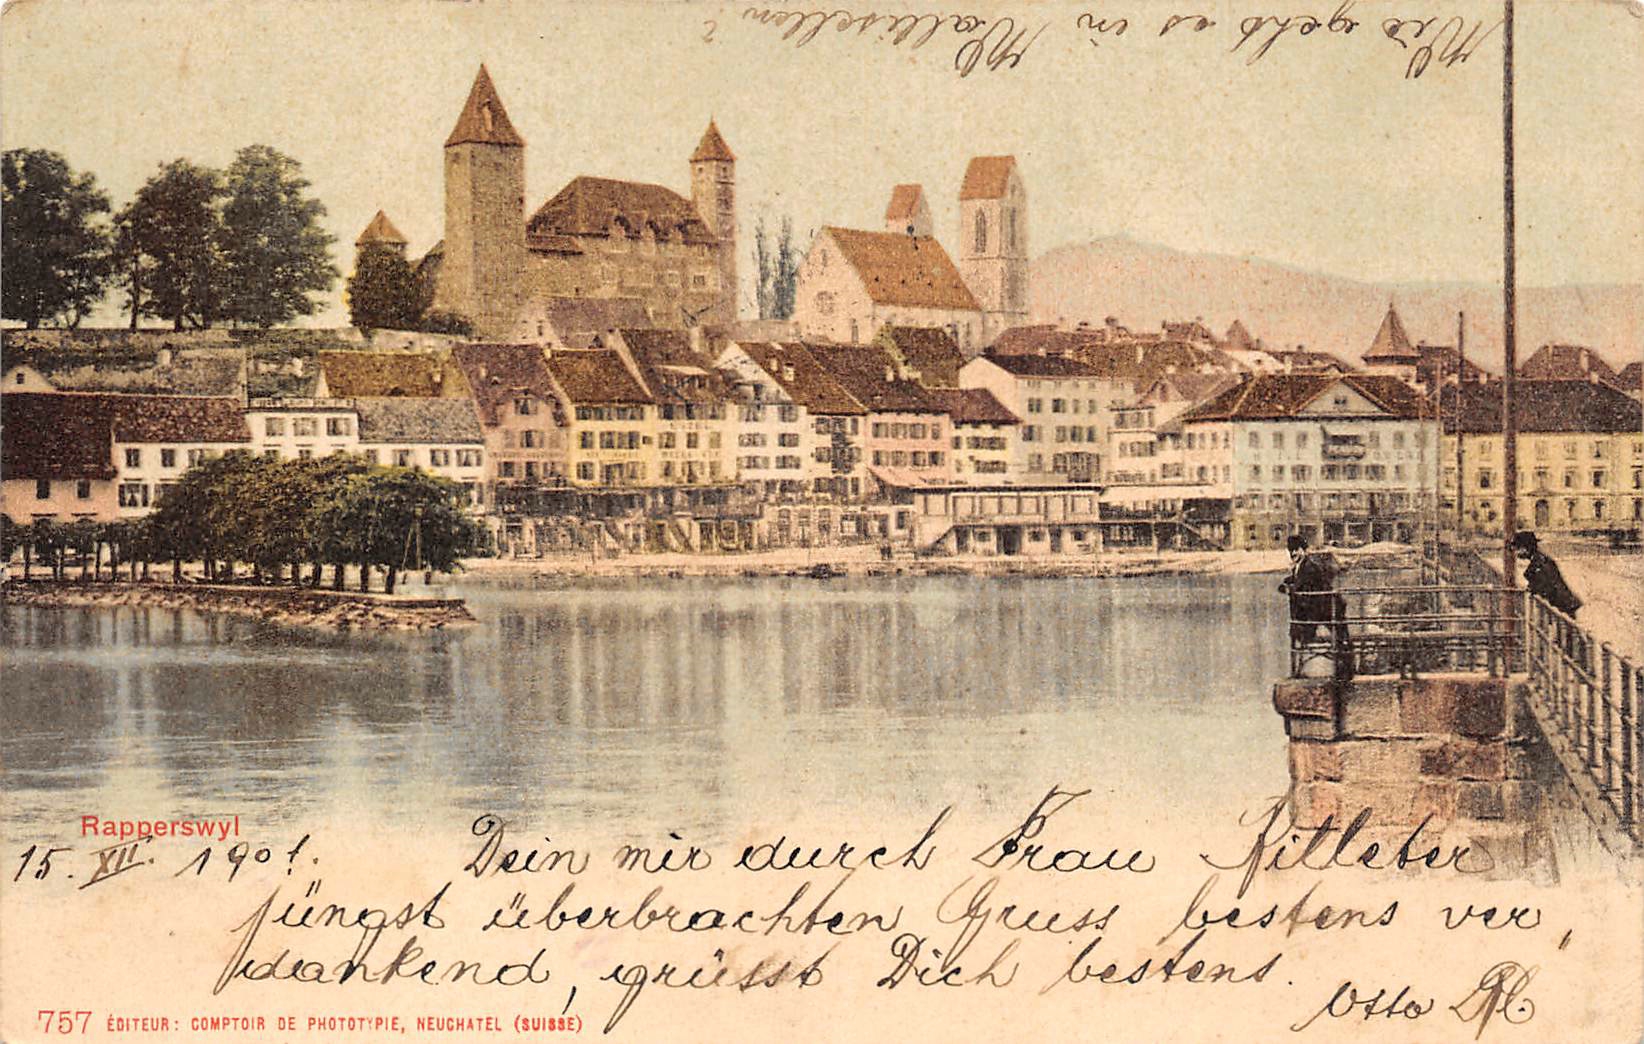 Wie geht es in Wallisellen?
Rapperswyl
15. XII. 1901.
Dein mir durch Frau
jüngst überbrachten Gruss bestens ver„
dankend, grüsst Dich bestens.
Otto
757 ÉDITEUR: COMPTOIR DE PHOTOTYPIE, NEUCHATEL (SUISSE)